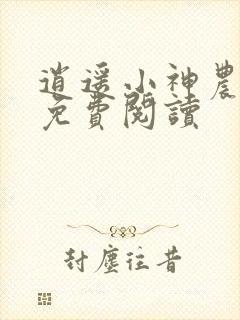 逍遥小神農
免費閱讀
封塵往昔